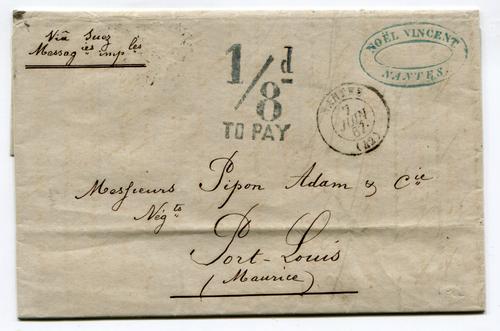 Viâ Suez
Messag ies imp les
1/8 d
TO PAY
NANTES
7
JUIN
67
(42)
NOËL VINCENT
NANTES.
Messieurs Pipon Adam & Cie
Négts
Port-Louis
(Maurice)